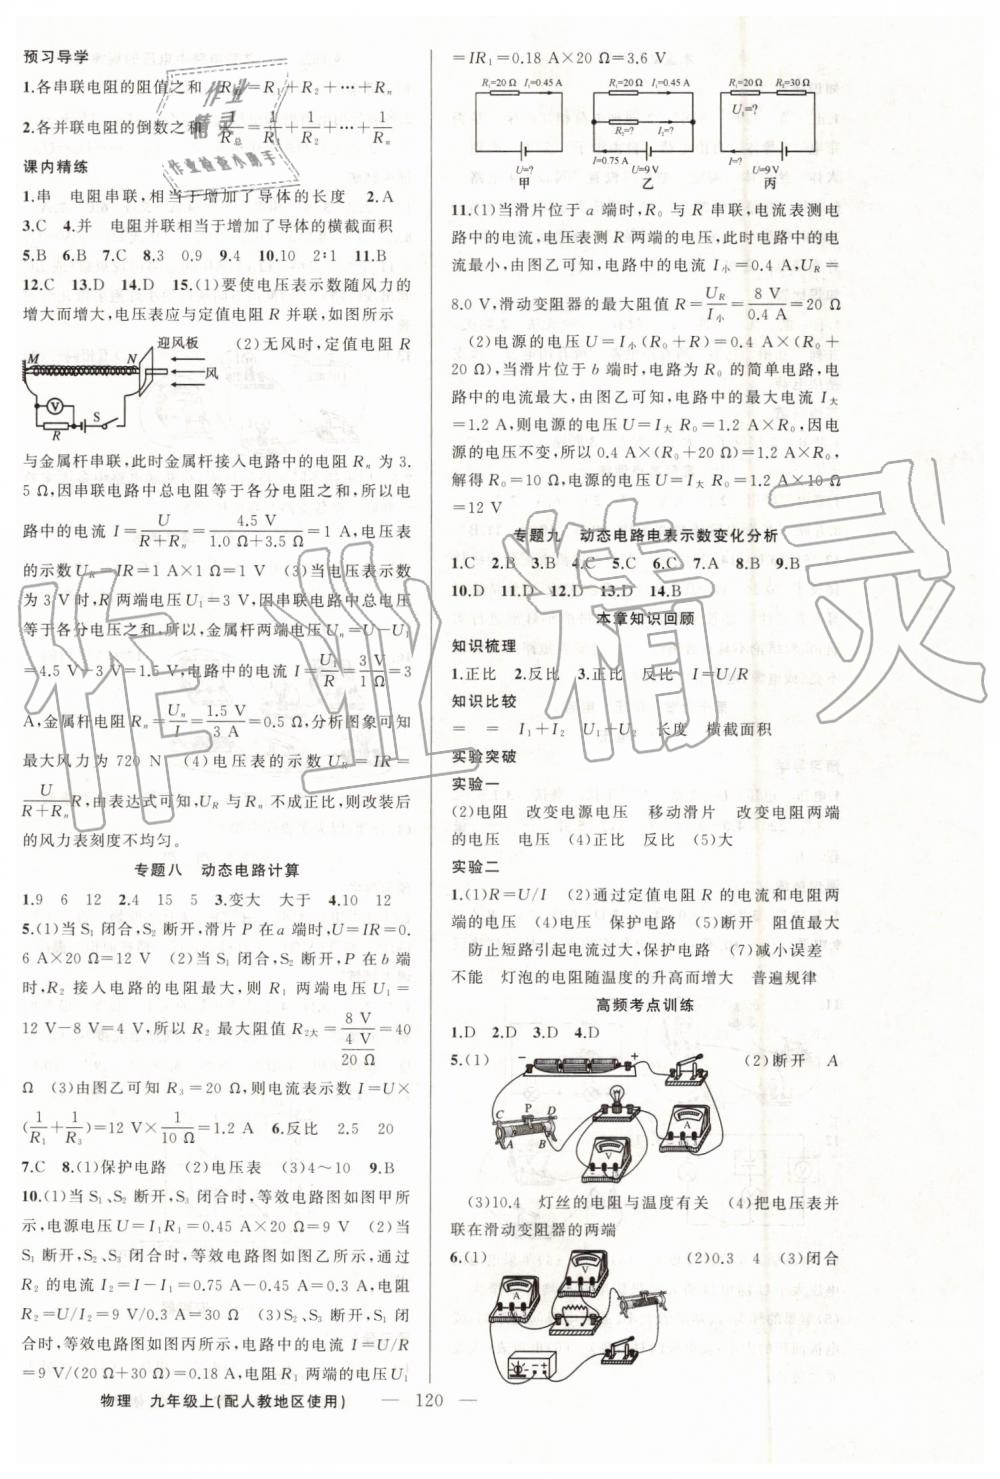 预习导学
1.各串联电阻的阻值之和 R总=R1+R2+…+Rn
2.各并联电阻的倒数之和 1/R总=1/R1+1/R2+…+1/Rn
课内精练
1.串 电阻串联,相当于增加了导体的长度 2.A
3.C 4.并 电阻并联相当于增加了导体的横截面积
5.B 6.B 7.C 8.3 0.9 9.4 10.10 2:1 11.B
12.C 13.D 14.D 15.(1)要使电压表示数随风力的
增大而增大,电压表应与定值电阻 R 并联,如图所示
迎风板 (2)无风时,定值电阻 R
M N
风
V
S
R
与金属杆串联,此时金属杆接入电路中的电阻 Rn 为 3.
5 Ω,因串联电路中总电阻等于各分电阻之和,所以电
路中的电流 I=U/(R+Rn)=4.5 V/(1.0 Ω+3.5 Ω)=1 A,电压表
的示数 UR=IR=1 A×1 Ω=1 V (3)当电压表示数
为 3 V时,R 两端电压 U1=3 V,因串联电路中总电压
等于各分电压之和,所以,金属杆两端电压 Un=U-U1
=4.5 V-3 V=1.5 V,电路中的电流 I=U1/R=3 V/1 Ω=3
A,金属杆电阻 Rn=Un/I=1.5 V/3 A=0.5 Ω,分析图象可知
最大风力为 720 N (4)电压表的示数 UR=IR=
U/(R+Rn)R,由表达式可知,UR 与 Rn 不成正比,则改装后
的风力表刻度不均匀。
专题八 动态电路计算
1.9 6 12 2.4 15 5 3.变大 大于 4.10 12
5.(1)当 S1 闭合,S2 断开,滑片 P 在 a 端时,U=IR=0.
6 A×20 Ω=12 V (2)当 S1 闭合,S2 断开,P 在 b 端
时,R2 接入电路的电阻最大,则 R1 两端电压 U1=
12 V-8 V=4 V,所以 R2 最大阻值 R2大=8 V/(4 V/20 Ω)=40
Ω (3)由图乙可知 R3=20 Ω,则电流表示数 I=U×
(1/R1+1/R3)=12 V×1/10 Ω=1.2 A 6.反比 2.5 20
7.C 8.(1)保护电路 (2)电压表 (3)4~10 9.B
10.(1)当 S1、S2 断开,S3 闭合时,等效电路图如图甲所
示,电源电压 U=I1R1=0.45 A×20 Ω=9 V (2)当
S1 断开,S2、S3 闭合时,等效电路图如图乙所示,通过
R2 的电流 I2=I-I1=0.75 A-0.45 A=0.3 A,电阻
R2=U/I2=9 V/0.3 A=30 Ω (3)S2、S3 断开,S1 闭
合时,等效电路图如图丙所示,电路中的电流 I=U/R
=9 V/(20 Ω+30 Ω)=0.18 A,电阻 R1 两端的电压 U1
=IR1=0.18 A×20 Ω=3.6 V
R1=20 Ω I1=0.45 A R1=20 Ω I1=0.45 A R1=20 Ω R2=30 Ω
U1=?
R2=? I2=?
I=0.75 A I=?
U=? U=9 V U=9 V
甲 乙 丙
11.(1)当滑片位于 a 端时,R0 与 R 串联,电流表测电
路中的电流,电压表测 R 两端的电压,此时电路中的电
流最小,由图乙可知,电路中的电流 I小=0.4 A,UR=
8.0 V,滑动变阻器的最大阻值 R=UR/I小=8 V/0.4 A=20 Ω
(2)电源的电压 U=I小(R0+R)=0.4 A×(R0+
20 Ω),当滑片位于 b 端时,电路为 R0 的简单电路,电
路中的电流最大,由图乙可知,电路中的最大电流 I大
=1.2 A,则电源的电压 U=I大 R0=1.2 A×R0,因电
源的电压不变,所以 0.4 A×(R0+20 Ω)=1.2 A×R0,
解得 R0=10 Ω,电源的电压 U=I大 R0=1.2 A×10 Ω
=12 V
专题九 动态电路电表示数变化分析
1.C 2.B 3.B 4.C 5.C 6.C 7.A 8.B 9.B
10.D 11.D 12.D 13.D 14.B
本章知识回顾
知识梳理
1.正比 2.反比 3.正比 反比 I=U/R
知识比较
= = I1+I2 U1+U2 长度 横截面积
实验突破
实验一
(2)电阻 改变电源电压 移动滑片 改变电阻两端
的电压 电压 (4)正比 反比 (5)大
实验二
1.(1)R=U/I (2)通过定值电阻 R 的电流和电阻两
端的电压 (4)电压 保护电路 (5)断开 阻值最大
防止短路引起电流过大,保护电路 (7)减小误差
不能 灯泡的电阻随温度的升高而增大 普遍规律
高频考点训练
1.D 2.D 3.D 4.D
5.(1) (2)断开 A
- +
C P D
A B
V
A
(3)10.4 灯丝的电阻与温度有关 (4)把电压表并
联在滑动变阻器的两端
6.(1) (2)0.3 4 (3)闭合
物理 九年级上(配人教地区使用) — 120 —
作业
精灵
作业检查小助手
作业精灵